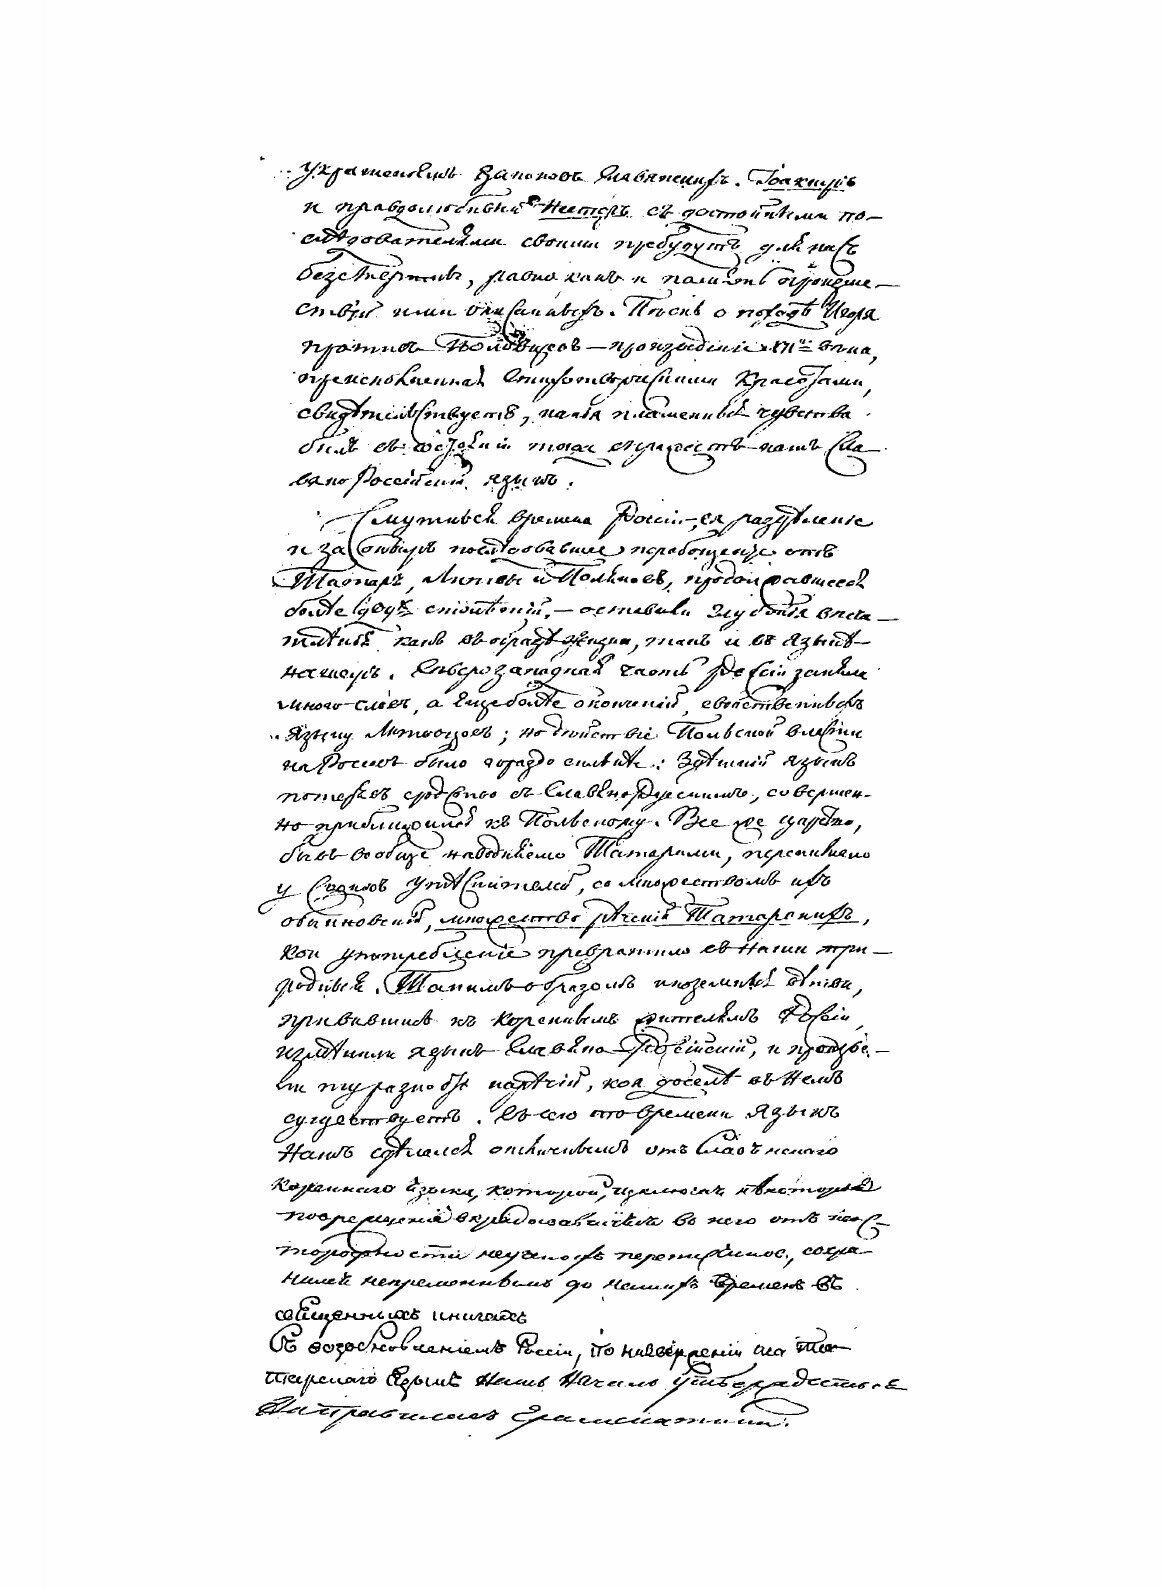 украшеніемъ Законовъ Славянскихъ. Іоакимъ
и правдолюбивый Несторъ съ достойными по-
слѣдователями своими пребудутъ для насъ
безсмертны, равно какъ и память происше-
ствій ими описанныхъ. Пѣснь о походѣ Игоря
противъ Половцовъ — произведеніе XII го вѣка,
преисполненная стихотворческими красотами,
свидѣтельствуетъ, какія пламенныя чувства
былъ въ состояніи тогда выражать нашъ Сла-
вяно Россійскій языкъ.
Смутныя времена Россіи, ея раздѣленіе
и за онымъ послѣдовавшее порабощеніе отъ
Татаръ, Литвы и Поляковъ, продолжавшееся
болѣе двухъ столѣтій, — оставили глубокія впеча-
тлѣнія какъ въ образѣ жизни, такъ и въ языкѣ
нашемъ. Сѣверозападная часть Россіи заняла
много словъ, а еще болѣе окончаній, свойственныхъ
языку Литовцовъ; но дѣйствіе Польской власти
на Россовъ было гораздо сильнѣе: Здѣшній языкъ
потерявъ сродство съ Славяно Рускимъ, совершен-
но приблизился къ Польскому. Все же царство,
бывъ вообще наводняемо Татарами, переникло
у своихъ утѣснителей, со множествомъ ихъ
обыкновеній, множество рѣченій Татарскихъ,
кои употребленіе превратило въ наши при-
родныя. Такимъ образомъ иноземныя вѣтви,
привившись къ кореннымъ жителямъ Россіи,
измѣнили языкъ Славяно Россійскій, и произве-
ли ту разнобоя нарѣчій, кои доселѣ въ немъ
существуетъ. Съ сего то времени языкъ
нашъ сдѣлался отличнымъ отъ Славенскаго
кореннаго языка, которой, изключая нѣкоторыя
погрешенія вкрадовавшіяся во него отъ неос-
торожности неученыхъ переписчиковъ, сохра-
нился непремѣннымъ до нашихъ временъ въ
священныхъ книгахъ
Съ возобновленіемъ Россіи, по низверженіи ига Та-
тарскаго Языкъ нашъ началъ утверждаться
На правилахъ Грамматики.